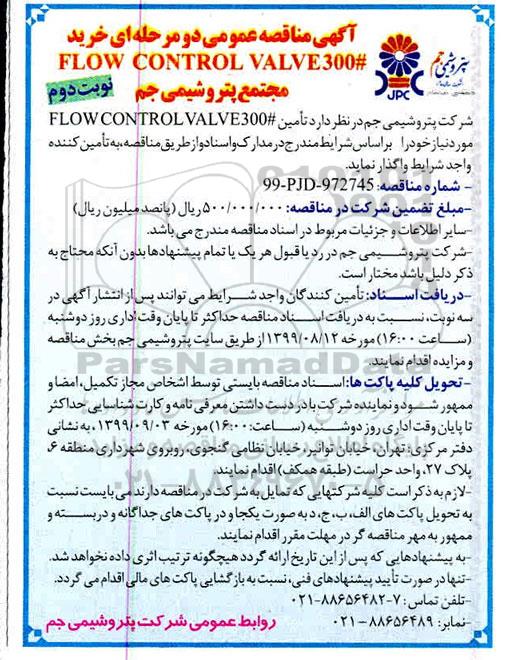 آگهی مناقصه عمومی دو مرحله‌ای خرید
FLOW CONTROL VALVE300#
مجتمع پتروشیمی جم
نوبت دوم
پتروشیمی جم
JPC
شرکت پتروشیمی جم در نظر دارد تأمین FLOW CONTROL VALVE300#
مورد نیاز خود را بر اساس شرایط مندرج در مدارک و اسناد و از طریق مناقصه، به تأمین کننده
واجد شرایط واگذار نماید.
- شماره مناقصه: 99-PJD-972745
-مبلغ تضمین شرکت در مناقصه: ۵۰۰/۰۰۰/۰۰۰ ریال (پانصد میلیون ریال)
-سایر اطلاعات و جزئیات مربوط در اسناد مناقصه مندرج می باشد.
-شرکت پتروشیمی جم در رد یا قبول هر یک یا تمام پیشنهادها بدون آنکه محتاج به
ذکر دلیل باشد مختار است.
-دریافت اسناد: تأمین کنندگان واجد شرایط می توانند پس از انتشار آگهی در
سه نوبت، نسبت به دریافت اسناد مناقصه حداکثر تا پایان وقت اداری روز دوشنبه
(ساعت ۱۶:۰۰) مورخه ۱۳۹۹/۰۸/۱۲ از طریق سایت پتروشیمی جم بخش مناقصه
و مزایده اقدام نمایند.
-تحویل کلیه پاکت ها: اسناد مناقصه بایستی توسط اشخاص مجاز تکمیل، امضا و
ممهور شود و نماینده شرکت با در دست داشتن معرفی نامه و کارت شناسایی حداکثر
تا پایان وقت اداری روز دوشنبه (ساعت: ۱۶:۰۰) مورخه ۱۳۹۹/۰۹/۰۳، به نشانی
دفتر مرکزی: تهران، خیابان توانیر، خیابان نظامی گنجوی، روبروی شهرداری منطقه ۶،
پلاک ۲۷، واحد حراست (طبقه همکف) اقدام نمایند.
-لازم به ذکر است کلیه شرکتهایی که تمایل به شرکت در مناقصه دارند می بایست نسبت
به تحویل پاکت های الف، ب، ج، د به صورت یکجا و در پاکت های جداگانه و دربسته و
ممهور به مهر مناقصه گر در مهلت مقرر اقدام نمایند.
-به پیشنهادهایی که پس از این تاریخ ارائه گردد هیچگونه ترتیب اثری داده نخواهد شد.
-تنها در صورت تأیید پیشنهادهای فنی، نسبت به بازگشایی پاکت های مالی اقدام می گردد.
-تلفن تماس: ۷-۸۸۶۵۶۴۸۲-۰۲۱
-نمابر: ۸۸۶۵۶۴۸۹-۰۲۱
روابط عمومی شرکت پتروشیمی جم
ParsNamadData
۰۲۱-۸۸۳۴۹۶۷۰-۵